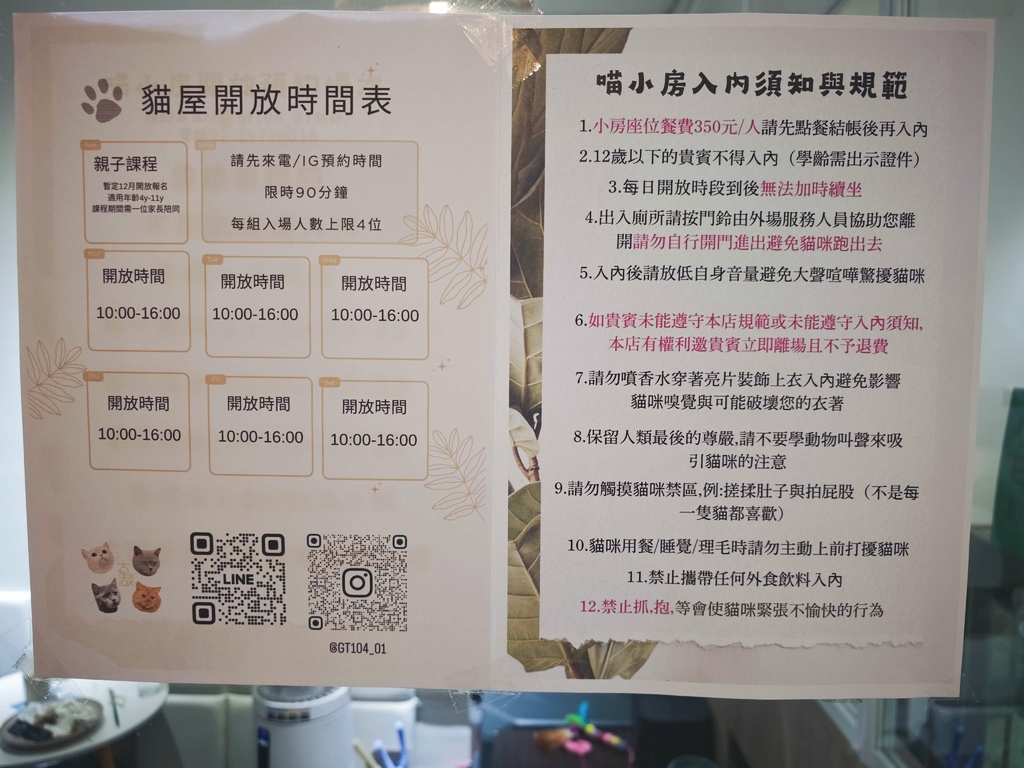 貓屋開放時間表
親子課程
暫定12月開放報名
適用年齡4y-11y
課程期間需一位家長陪同
請先來電/IG預約時間
限時90分鐘
每組入場人數上限4位
開放時間
10:00-16:00
開放時間
10:00-16:00
開放時間
10:00-16:00
開放時間
10:00-16:00
開放時間
10:00-16:00
開放時間
10:00-16:00
LINE
@GT104_01
喵小房入內須知與規範
1.小房座位餐費350元/人請先點餐結帳後再入內
2.12歲以下的貴賓不得入內（學齡需出示證件）
3.每日開放時段到後無法加時續坐
4.出入廁所請按門鈴由外場服務人員協助您離
開請勿自行開門進出避免貓咪跑出去
5.入內後請放低自身音量避免大聲喧嘩驚擾貓咪
6.如貴賓未能遵守本店規範或未能遵守入內須知,
本店有權利邀貴賓立即離場且不予退費
7.請勿噴香水穿著亮片裝飾上衣入內避免影響
貓咪嗅覺與可能破壞您的衣著
8.保留人類最後的尊嚴,請不要學動物叫聲來吸
引貓咪的注意
9.請勿觸摸貓咪禁區,例:搓揉肚子與拍屁股（不是每
一隻貓都喜歡）
10.貓咪用餐/睡覺/理毛時請勿主動上前打擾貓咪
11.禁止攜帶任何外食飲料入內
12.禁止抓,抱,等會使貓咪緊張不愉快的行為